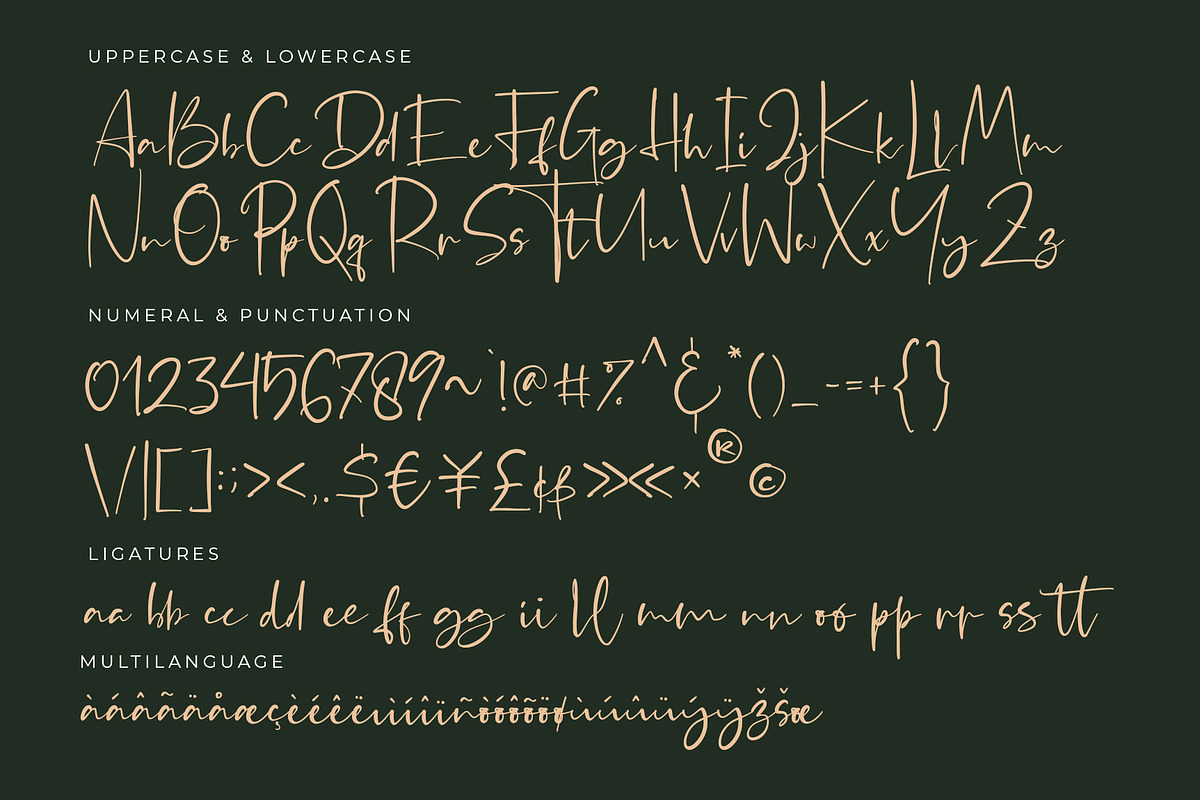 UPPERCASE & LOWERCASE
AaBbCcDdEeFfGgHhIiJjKkLlMm
NnOoPpQqRrSsTtUuVvWwXxYyZz
NUMERAL & PUNCTUATION
0123456789~`!@#%^&*()_-=+{}
\/|[]:;><,.$€¥£¢ƒ»«×®©
LIGATURES
aa bb cc dd ee ff gg ii ll mm nn oo pp rr ss tt
MULTILANGUAGE
àáâãäåæçèéêëìíîïñòóôõöøùúûüýÿžšœ